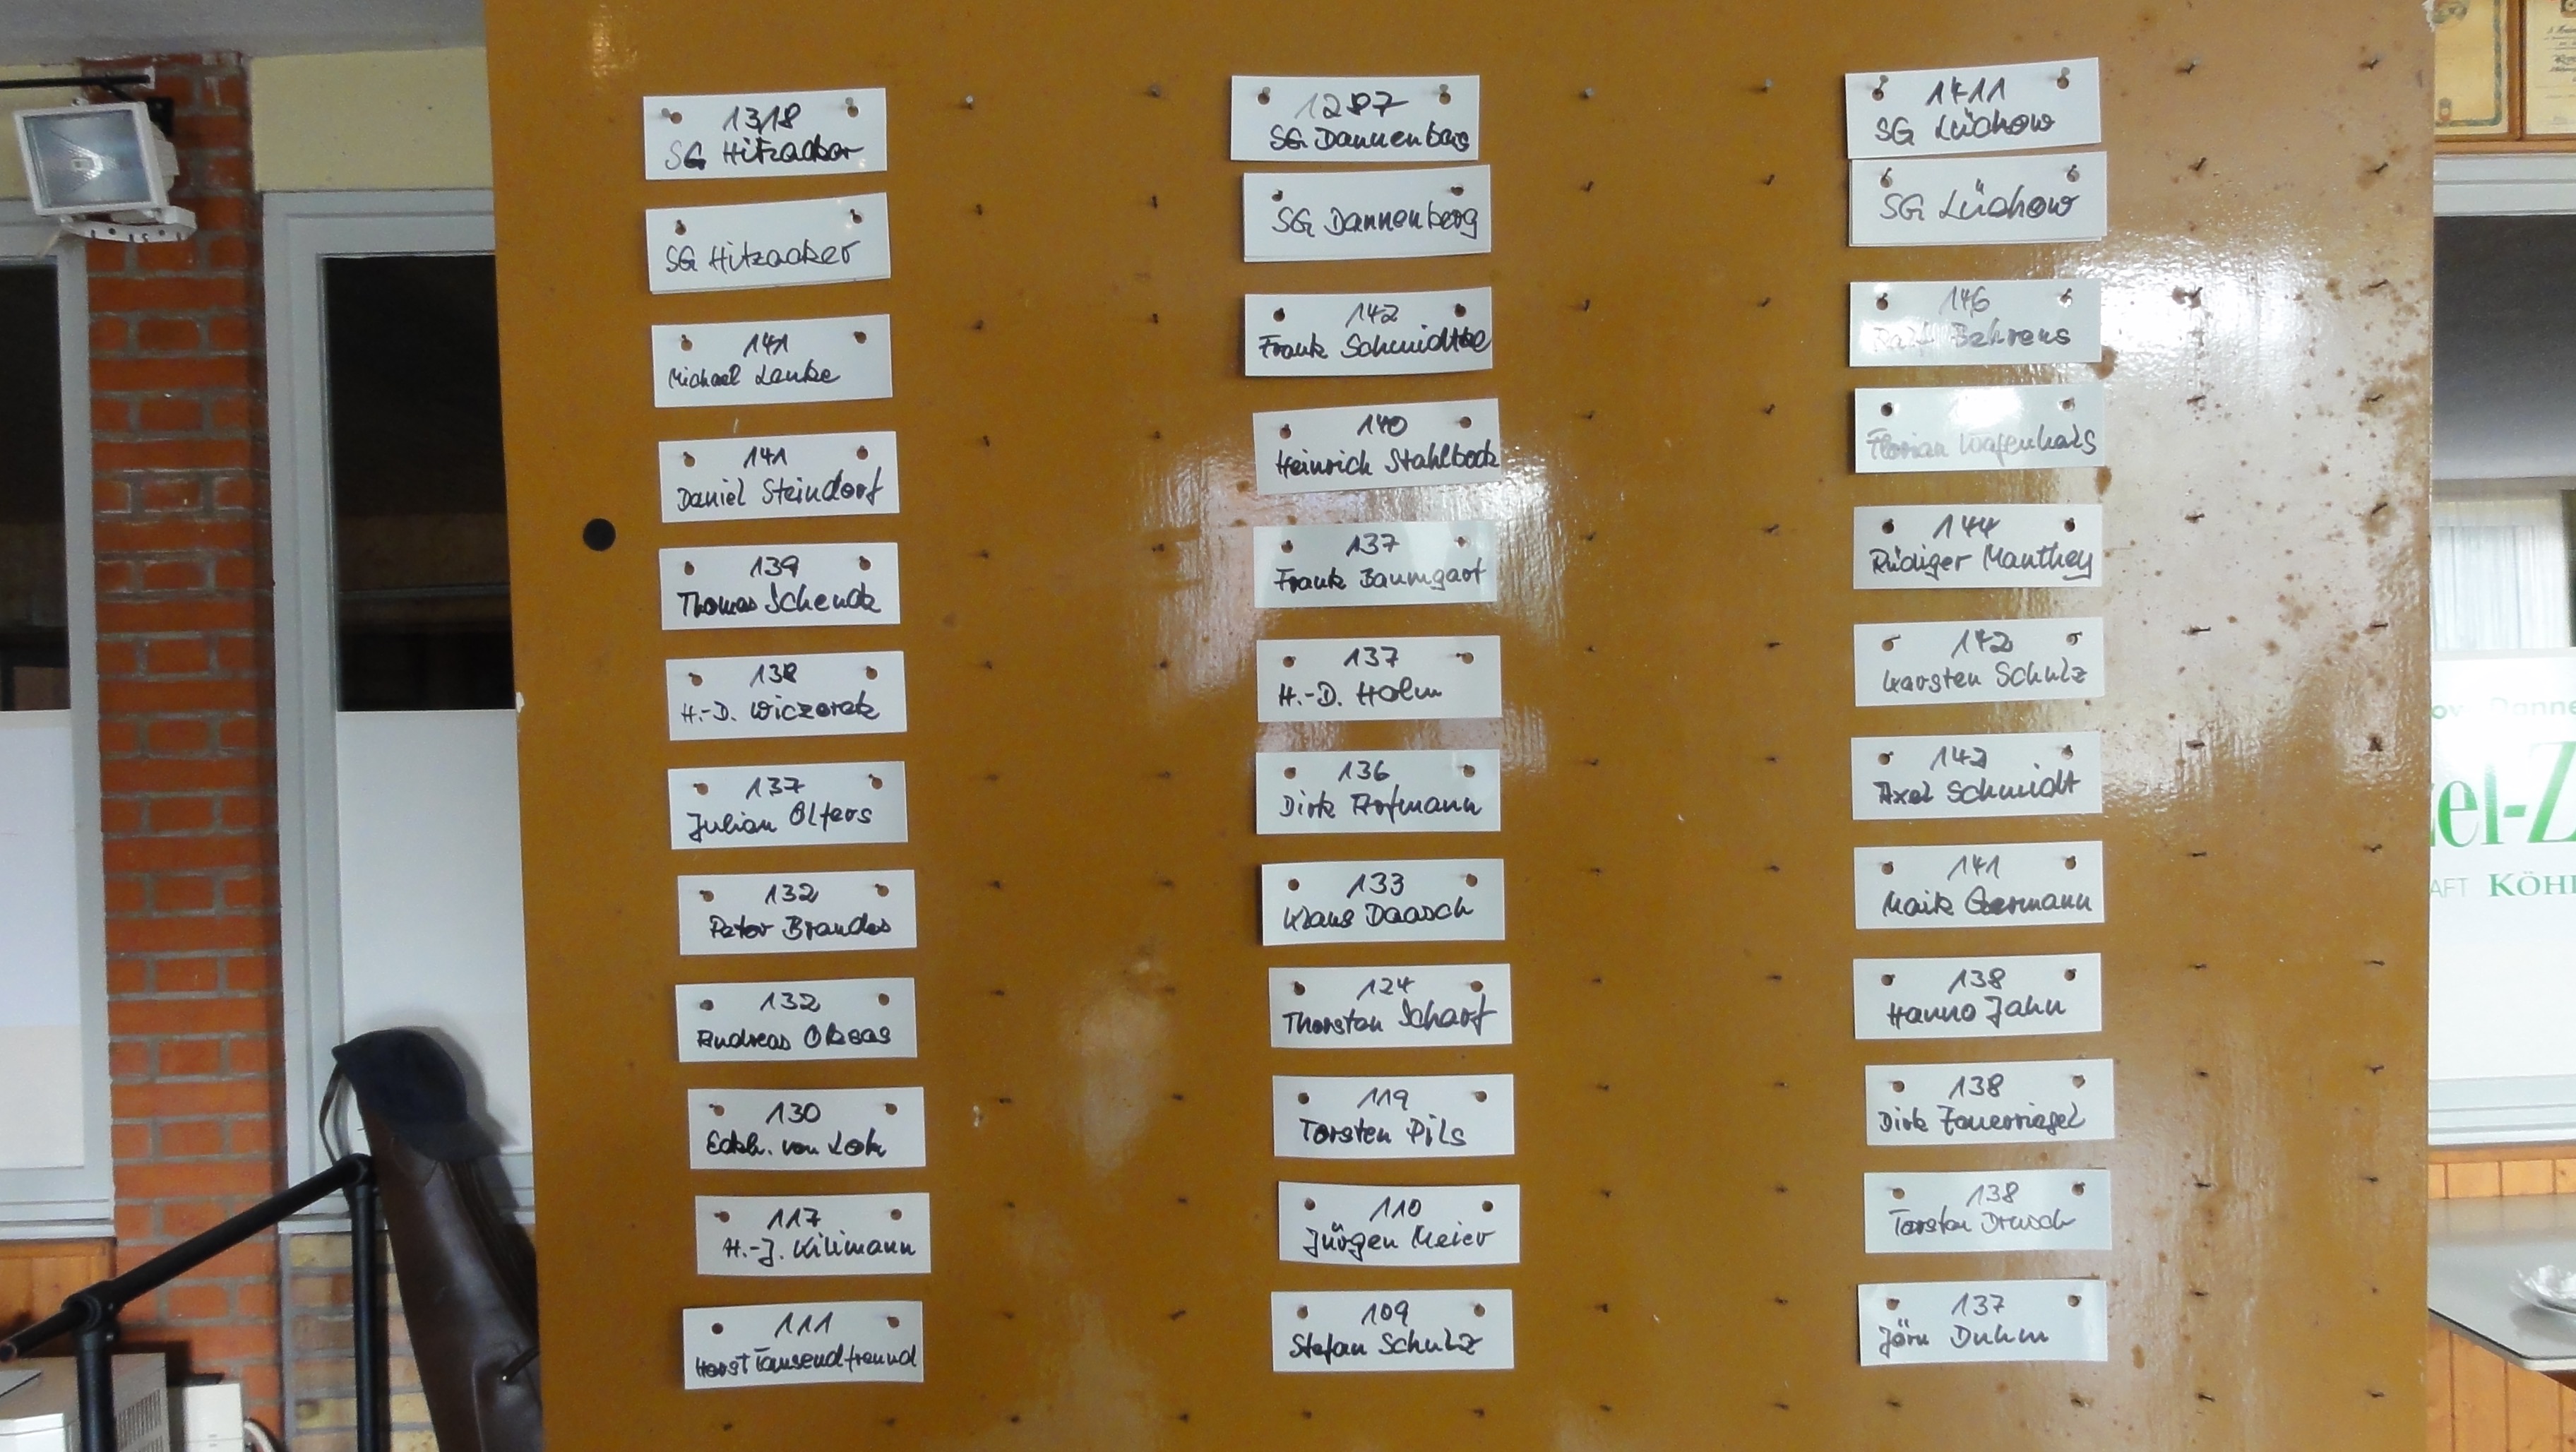 1318
SG Hitzacker
SG Hitzacker
141
Michael Lanke
141
Daniel Steindorf
139
Thomas Schenck
138
H.-D. Wiczorek
137
Julian Olfers
132
Peter Brandes
132
Andreas
130
Eckh. von
117
H.-J. Kilimann
111
Horst Tausendfreund
1287
SG Dannenberg
SG Dannenberg
142
Frank
140
Heinrich Stahlbock
137
Frank Baumgart
137
H.-D. Halm
136
Dirk Hofmann
133
Klaus Daasch
124
Thorsten Scharf
119
Torsten Pils
110
Jürgen Meier
109
Stefan Schulz
1411
SG Lüchow
SG Lüchow
146
Ralf Behrens
Florian
144
Rüdiger Manthey
142
Karsten Schulz
142
Axel Schmidt
141
Maik
138
Hanno Jahn
138
Dirk
138
Torsten Drusch
137
Jörn Duhm
Danne
zel-Z
AFT KÖH